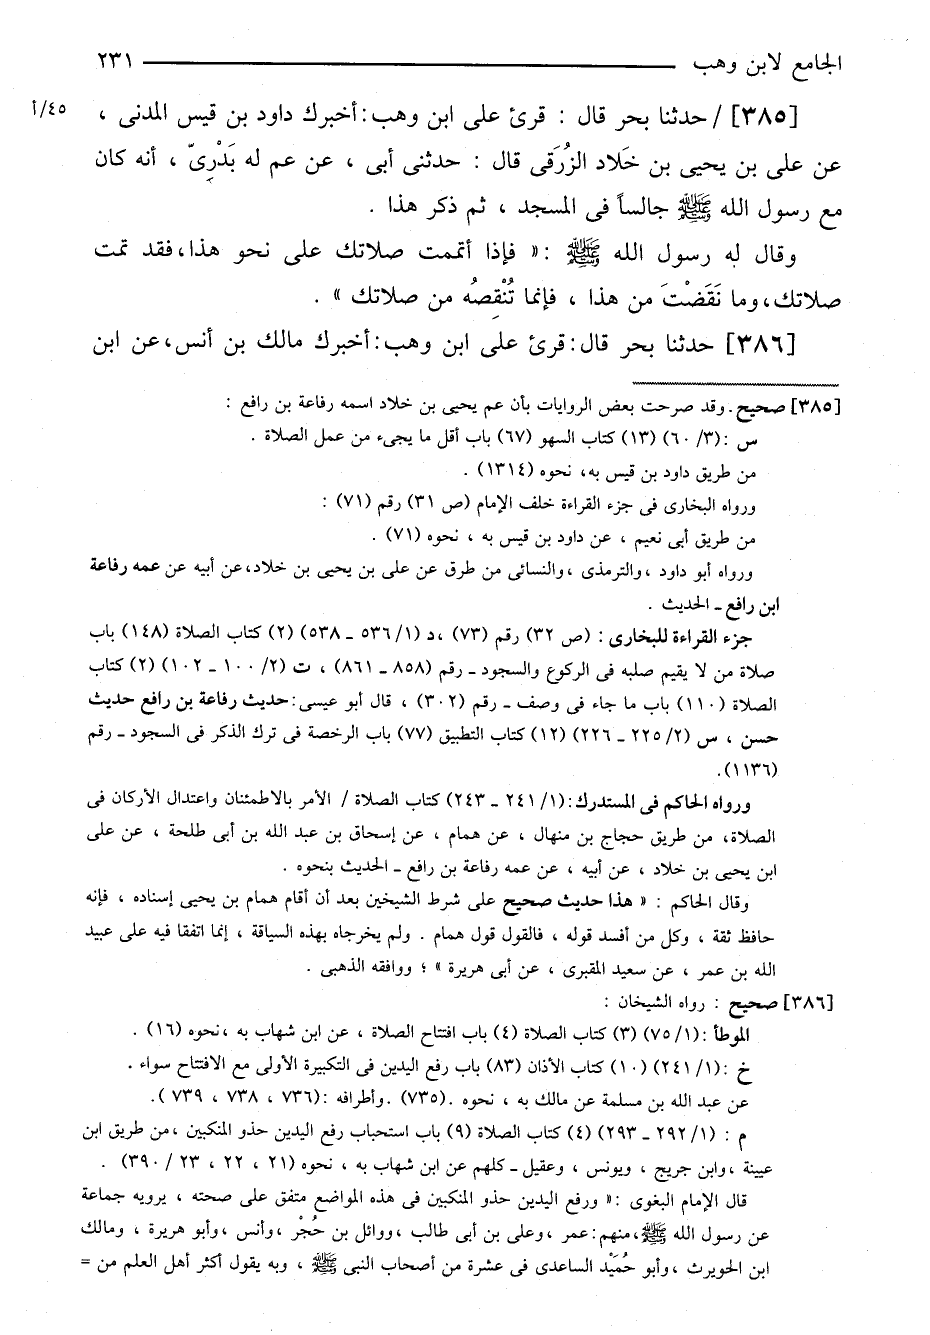 الجامع لابن وهب ٢٣١
[٣٨٥] / حدثنا بحر قال : قرئ على ابن وهب : أخبرك داود بن قيس المدنى ، ٤٥/أ
عن على بن يحيى بن خَلاد الزُرَقى قال : حدثنى أبى ، عن عم له بَدْرِىّ ، أنه كان
مع رسول الله ﷺ جالساً فى المسجد ، ثم ذكر هذا .
وقال له رسول الله ﷺ : « فإذا أتممت صلاتك على نحو هذا ، فقد تمت
صلاتك ، وما نَقَصْتَ من هذا ، فإنما تُنْقِصُه من صلاتك » .
[٣٨٦] حدثنا بحر قال : قرئ على ابن وهب : أخبرك مالك بن أنس ، عن ابن
[٣٨٥] صحيح . وقد صرحت بعض الروايات بأن عم يحيى بن خلاد اسمه رفاعة بن رافع :
س : (٣/ ٦٠) (١٣) كتاب السهو (٦٧) باب أقل ما يجىء من عمل الصلاة .
من طريق داود بن قيس به ، نحوه (١٣١٤) .
ورواه البخارى فى جزء القراءة خلف الإمام (ص ٣١) رقم (٧١) :
من طريق أبى نعيم ، عن داود بن قيس به ، نحوه (٧١) .
ورواه أبو داود ، والترمذى ، والنسائى من طرق عن على بن يحيى بن خلاد ، عن أبيه عن عمه رفاعة
ابن رافع ـ الحديث .
جزء القراءة للبخارى : (ص ٣٢) رقم (٧٣) ، د (١/ ٥٣٦ ـ ٥٣٨) (٢) كتاب الصلاة (١٤٨) باب
صلاة من لا يقيم صلبه فى الركوع والسجود ـ رقم (٨٥٨ ـ ٨٦١) ، ت (٢/ ١٠٠ ـ ١٠٢) (٢) كتاب
الصلاة (١١٠) باب ما جاء فى وصف ـ رقم (٣٠٢) ، قال أبو عيسى : حديث رفاعة بن رافع حديث
حسن ، س (٢/ ٢٢٥ ـ ٢٢٦) (١٢) كتاب التطبيق (٧٧) باب الرخصة فى ترك الذكر فى السجود ـ رقم
(١١٣٦).
ورواه الحاكم فى المستدرك : (١/ ٢٤١ ـ ٢٤٣) كتاب الصلاة / الأمر بالاطمئنان واعتدال الأركان فى
الصلاة ، من طريق حجاج بن منهال ، عن همام ، عن إسحاق بن عبد الله بن أبى طلحة ، عن على
ابن يحيى بن خلاد ، عن أبيه ، عن عمه رفاعة بن رافع ـ الحديث بنحوه .
وقال الحاكم : « هذا حديث صحيح على شرط الشيخين بعد أن أقام همام بن يحيى إسناده ، فإنه
حافظ ثقة ، وكل من أفسد قوله ، فالقول قول همام . ولم يخرجاه بهذه السياقة ، إنما اتفقا فيه على عبيد
الله بن عمر ، عن سعيد المقبرى ، عن أبى هريرة » ؛ ووافقه الذهبى .
[٣٨٦] صحيح : رواه الشيخان :
الموطأ : (١/ ٧٥) (٣) كتاب الصلاة (٤) باب افتتاح الصلاة ، عن ابن شهاب به ، نحوه (١٦) .
خ : (١/ ٢٤١) (١٠) كتاب الأذان (٨٣) باب رفع اليدين فى التكبيرة الأولى مع الافتتاح سواء .
عن عبد الله بن مسلمة عن مالك به ، نحوه . (٧٣٥) . وأطرافه : (٧٣٦ ، ٧٣٨ ، ٧٣٩ ).
م : (١/ ٢٩٢ ـ ٢٩٣) (٤) كتاب الصلاة (٩) باب استحباب رفع اليدين حذو المنكبين ، من طريق ابن
عيينة ، وابن جريج ، ويونس ، وعقيل ـ كلهم عن ابن شهاب به ، نحوه (٢١ ، ٢٢ ، ٢٣ / ٣٩٠) .
قال الإمام البغوى : « ورفع اليدين حذو المنكبين فى هذه المواضع متفق على صحته ، يرويه جماعة
عن رسول الله ﷺ ، منهم : عمر ، وعلى بن أبى طالب ، ووائل بن حُجْر ، وأنس ، وأبو هريرة ، ومالك
ابن الحويرث ، وأبو حُمَيْد الساعدى فى عشرة من أصحاب النبى ﷺ ، وبه يقول أكثر أهل العلم من =